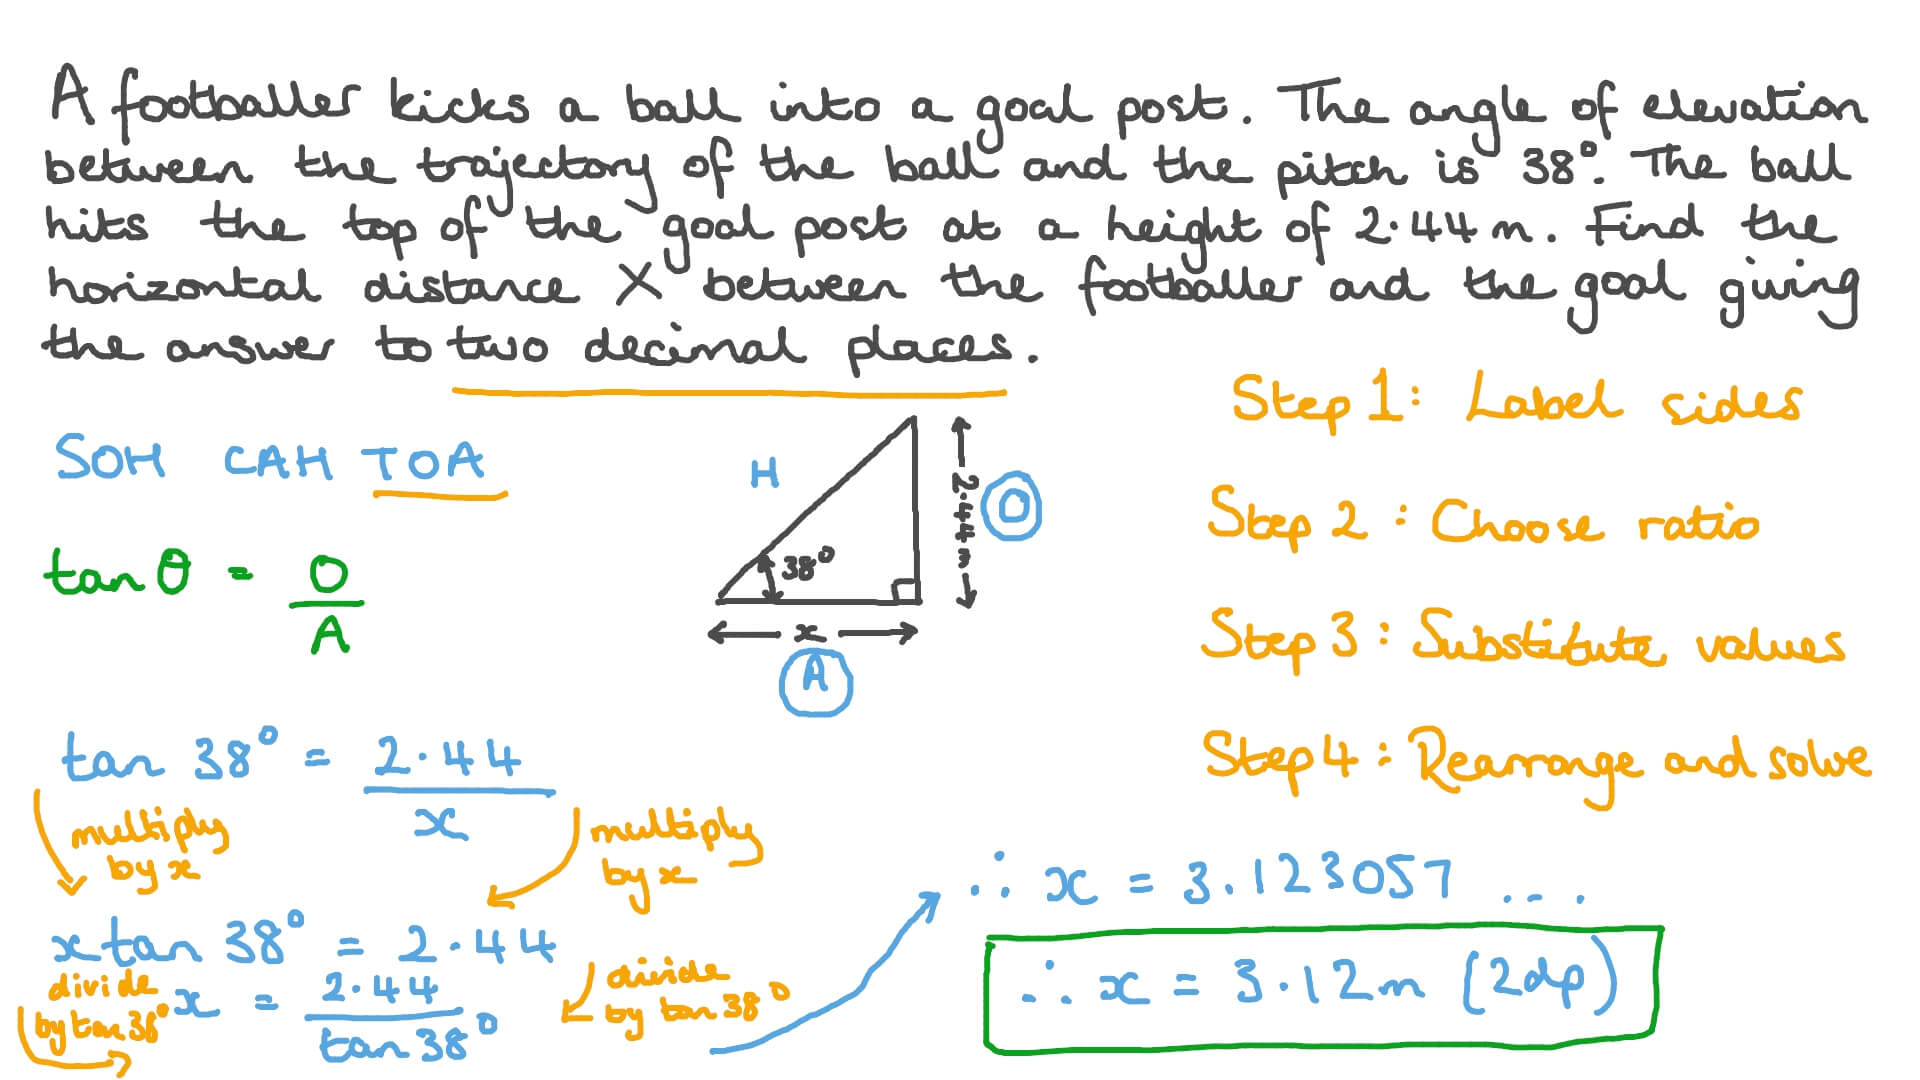 A footballer kicks a ball into a goal post. The angle of elevation
between the trajectory of the ball and the pitch is 38°. The ball
hits the top of the goal post at a height of 2.44m. Find the
horizontal distance X between the footballer and the goal giving
the answer to two decimal places.
SOH CAH TOA
tan θ = O
A
H
38°
2.44m
O
x
A
Step 1: Label sides
Step 2: Choose ratio
Step 3: Substitute values
Step 4: Rearrange and solve
tan 38° = 2.44
x
multiply
by x
multiply
by x
x tan 38° = 2.44
divide
by tan 38°
x = 2.44
tan 38°
divide
by tan 38°
∴ x = 3.123057 ....
∴ x = 3.12m (2dp)